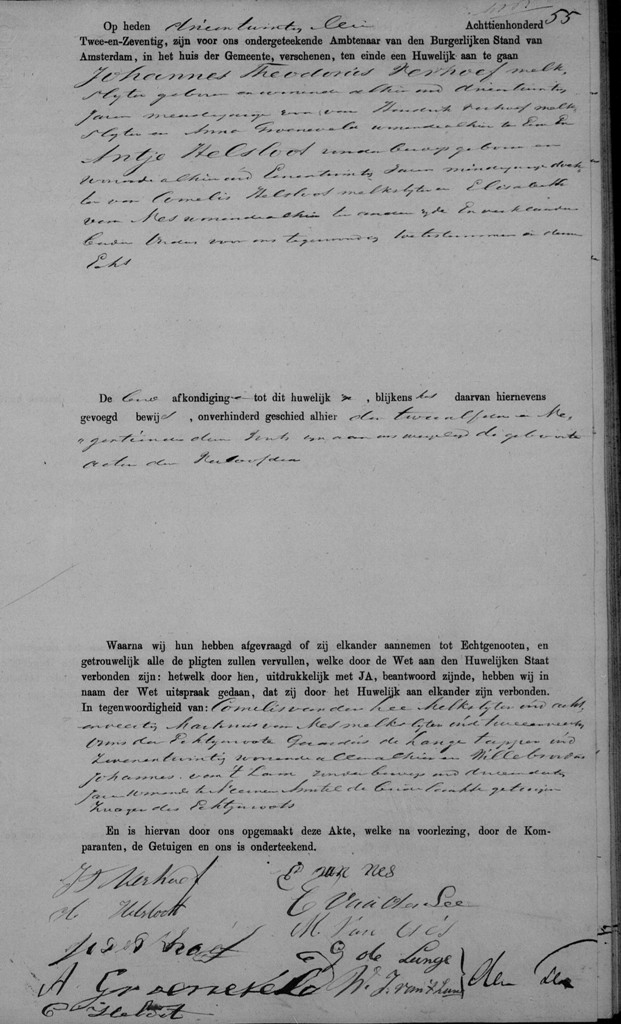 55
Op heden drieentwintig Mei Achttienhonderd
Twee-en-Zeventig, zijn voor ons ondergeteekende Ambtenaar van den Burgerlijken Stand van
Amsterdam, in het huis der Gemeente, verschenen, ten einde een Huwelijk aan te gaan
Johannes Theodorus Verhoef melk
slyter geboren en wonende alhier oud drieentwintig
Jaren minderjarige zoon van Hendrik Verhoef melk
slyter en Anna Groeneveld wonende alhier ter Eenre En
Antje Helsloot zonder beroep geboren en
wonende alhier oud Eenentwintig Jaren minderjarige doch
ter van Cornelis Helsloot melkslyter en Elisabeth
van Nes wonende alhier ter andere zyde En verklaarden
Ouders voor ons tegenwoordig toetestemmen in deze
Echt
De afkondiging tot dit huwelijk , blijkens het daarvan hiernevens
gevoegd bewijs , onverhinderd geschied alhier den twaalfden en Ne
gentienden dezer aan ons de geboorte
acten der
Waarna wij hun hebben afgevraagd of zij elkander aannemen tot Echtgenooten, en
getrouwelijk alle de pligten zullen vervullen, welke door de Wet aan den Huwelijken Staat
verbonden zijn: hetwelk door hen, uitdrukkelijk met JA, beantwoord zijnde, hebben wij in
naam der Wet uitspraak gedaan, dat zij door het Huwelijk aan elkander zijn verbonden.
In tegenwoordigheid van: Cornelis van der Lee Melkslyter oud acht
enveertig Martinus van Nes melkslyter oud
Ooms der Echtgenoote Gerardus de Lange tapper oud
Zevenentwintig wonende allen alhier en Willebrordus
Johannes van 't Lam zonder beroep oud
Jaren wonende te Nieuwer Amstel de beide laatste getuigen
Zwager des Echtgenoots
En is hiervan door ons opgemaakt deze Akte, welke na voorlezing, door de Kom-
paranten, de Getuigen en ons is onderteekend.
J T Verhoef
E van Nes
A Helsloot
C Van der Lee
M Van Nes
G de Lange
A Groeneveld
W. J. van 't Lam
C Helsloot